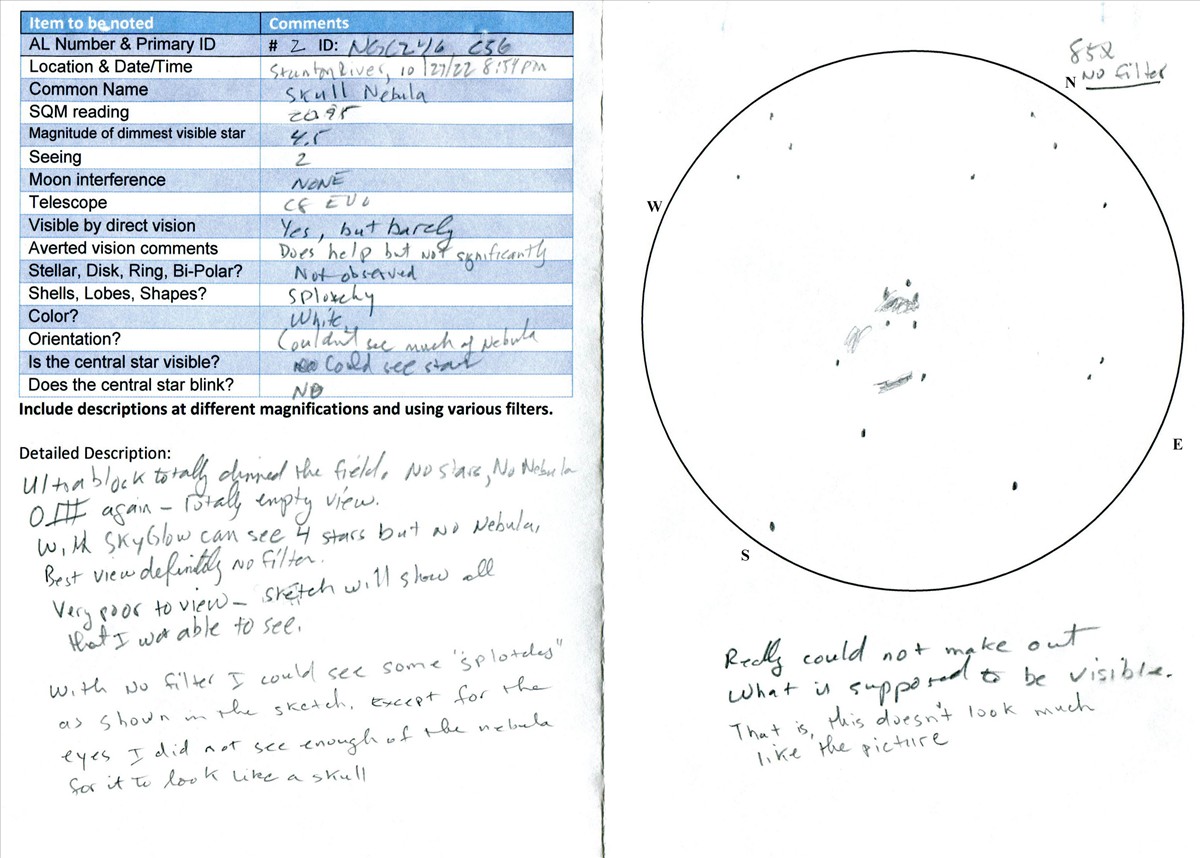 Item to be noted Comments
AL Number & Primary ID # 2 ID: NGC246, C56
Location & Date/Time Staunton River, 10/27/22 8:54 PM
Common Name Skull Nebula
SQM reading 20.95
Magnitude of dimmest visible star 4.5
Seeing 2
Moon interference NONE
Telescope C8 EVO
Visible by direct vision Yes, but barely
Averted vision comments Does help but not significantly
Stellar, Disk, Ring, Bi-Polar? Not observed
Shells, Lobes, Shapes? Splotchy
Color? White
Orientation? Couldn't see much of Nebula
Is the central star visible? Could see star
Does the central star blink? NO
Include descriptions at different magnifications and using various filters.
Detailed Description:
Ultrablock totally dimmed the field. No stars, No Nebula
OIII again - Totally empty view.
With SkyGlow can see 4 stars but no Nebula,
Best view definitely no filter.
Very poor to view - sketch will show all
that I was able to see.
With no filter I could see some "splotches"
as shown in the sketch. Except for the
eyes I did not see enough of the nebula
for it to look like a skull
85X
No filter
N
W
E
S
Really could not make out
what is supposed to be visible.
That is, this doesn't look much
like the picture